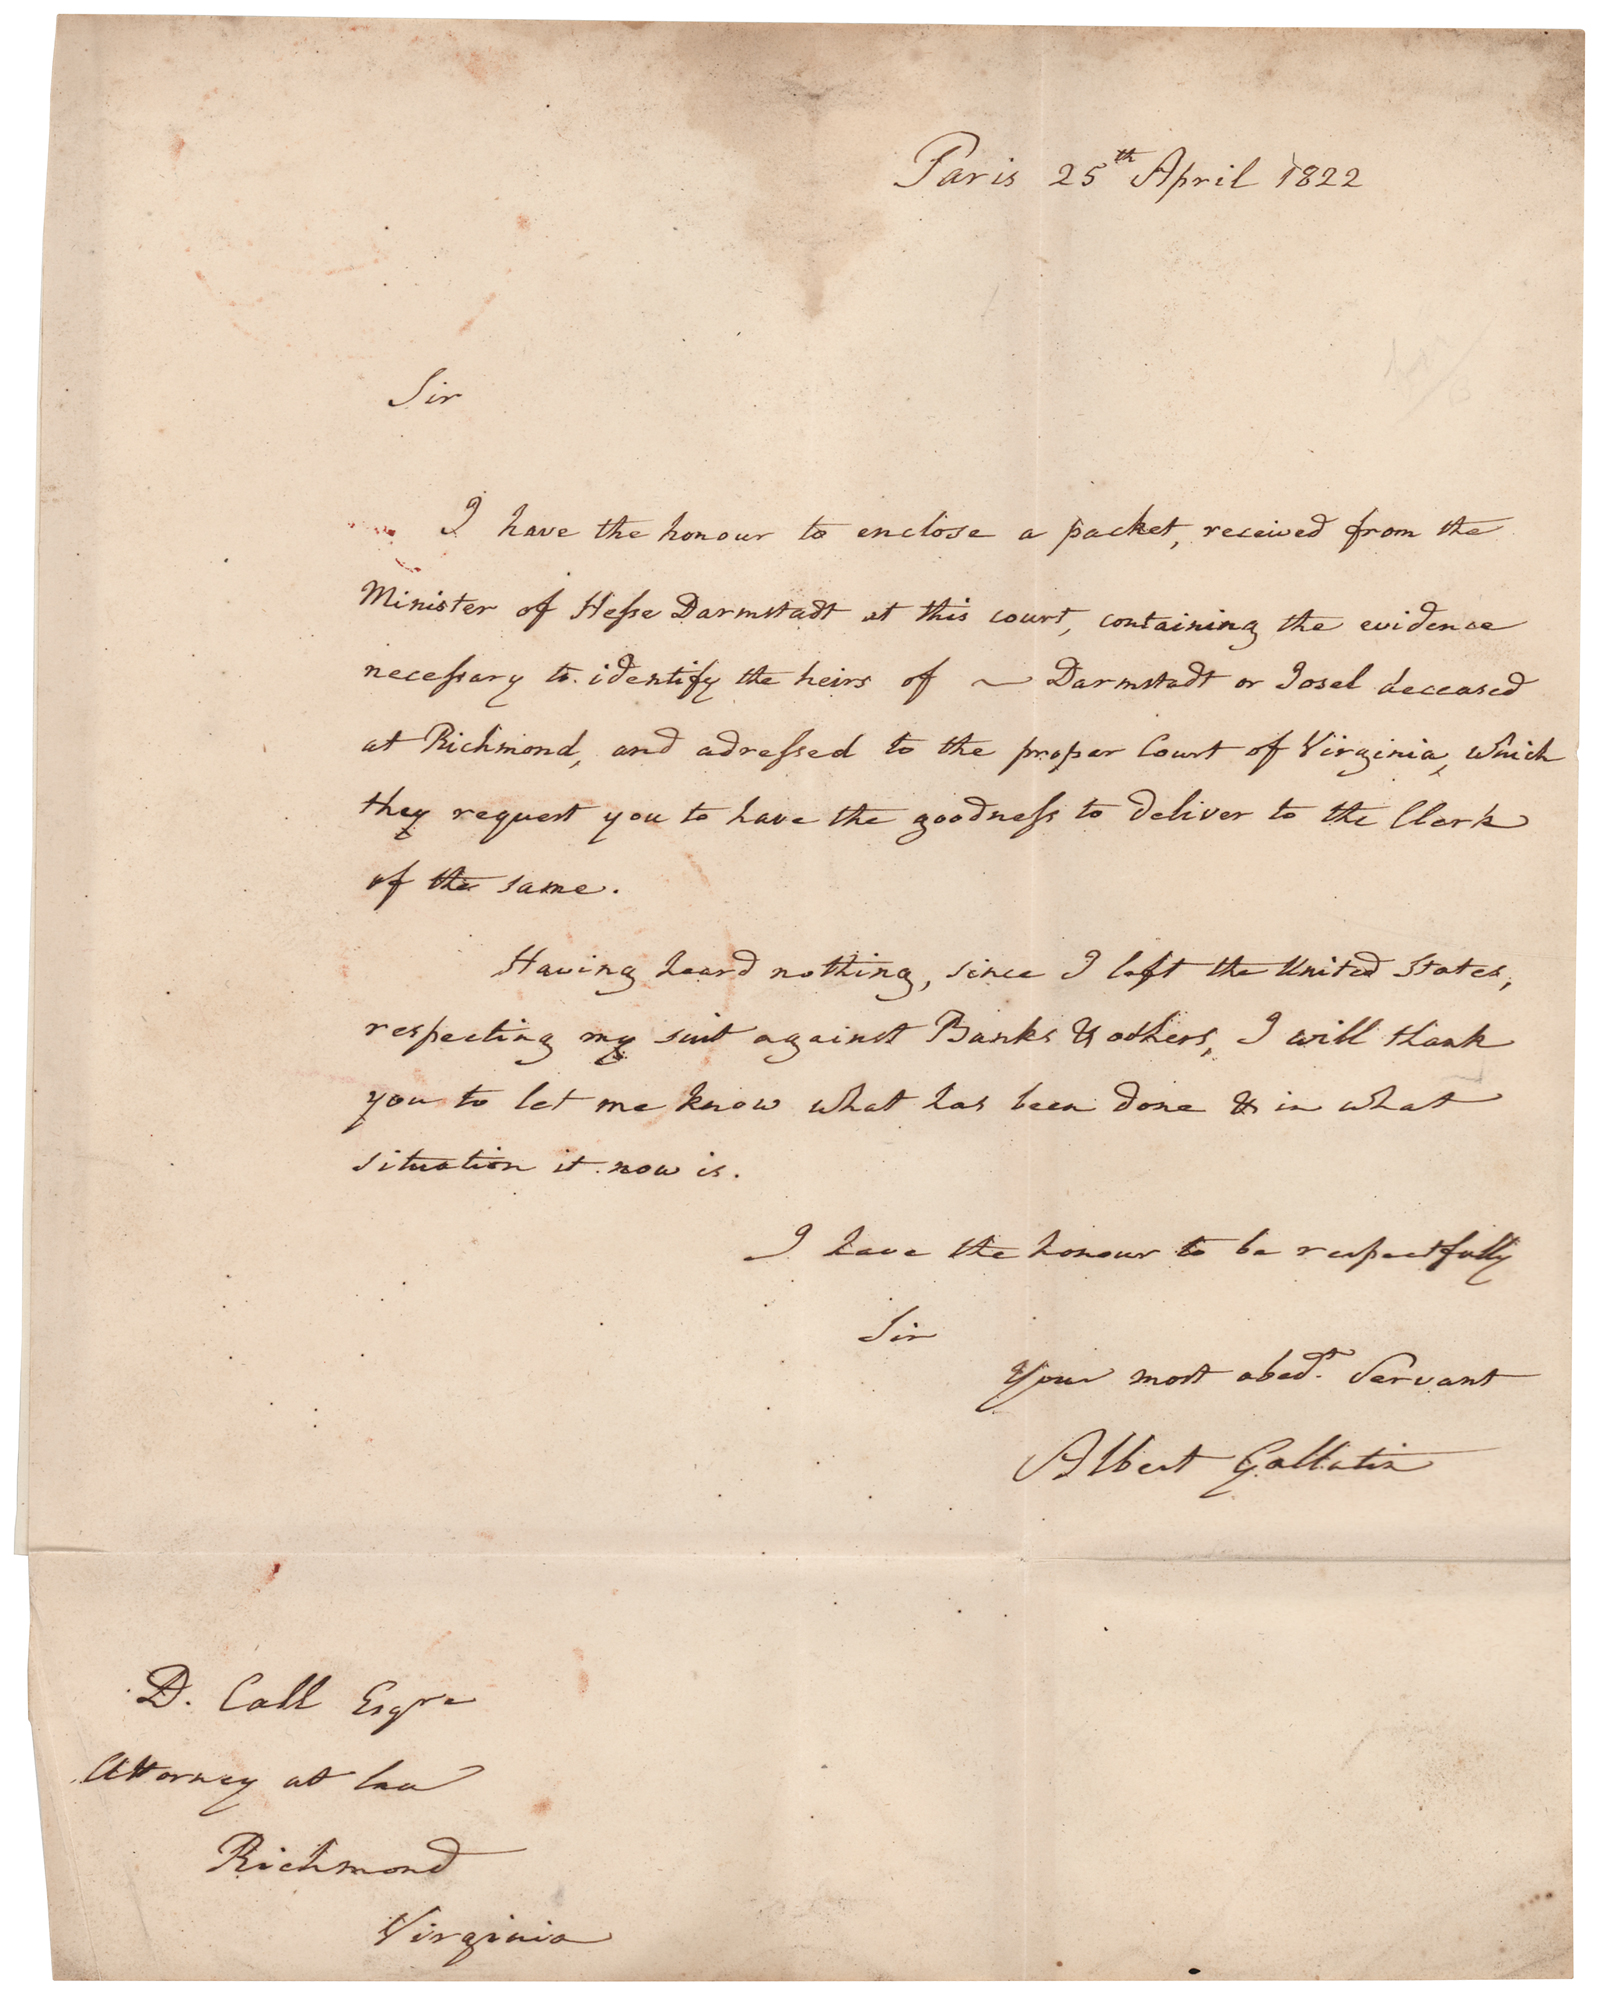 Paris 25th April 1822
Sir
I have the honour to enclose a packet, received from the
Minister of Hesse Darmstadt at this court, containing the evidence
necessary to identify the heirs of ~ Darmstadt or Josel deceased
at Richmond, and adressed to the proper Court of Virginia, which
they request you to have the goodness to deliver to the Clerk
of the same.
Having heard nothing, since I left the United States,
respecting my suit against Banks & others, I will thank
you to let me know what has been done & in what
situation it now is.
I have the honour to be respectfully
Sir
Your most obedt. Servant
Albert Gallatin
D. Call Esqre
Attorney at law
Richmond
Virginia